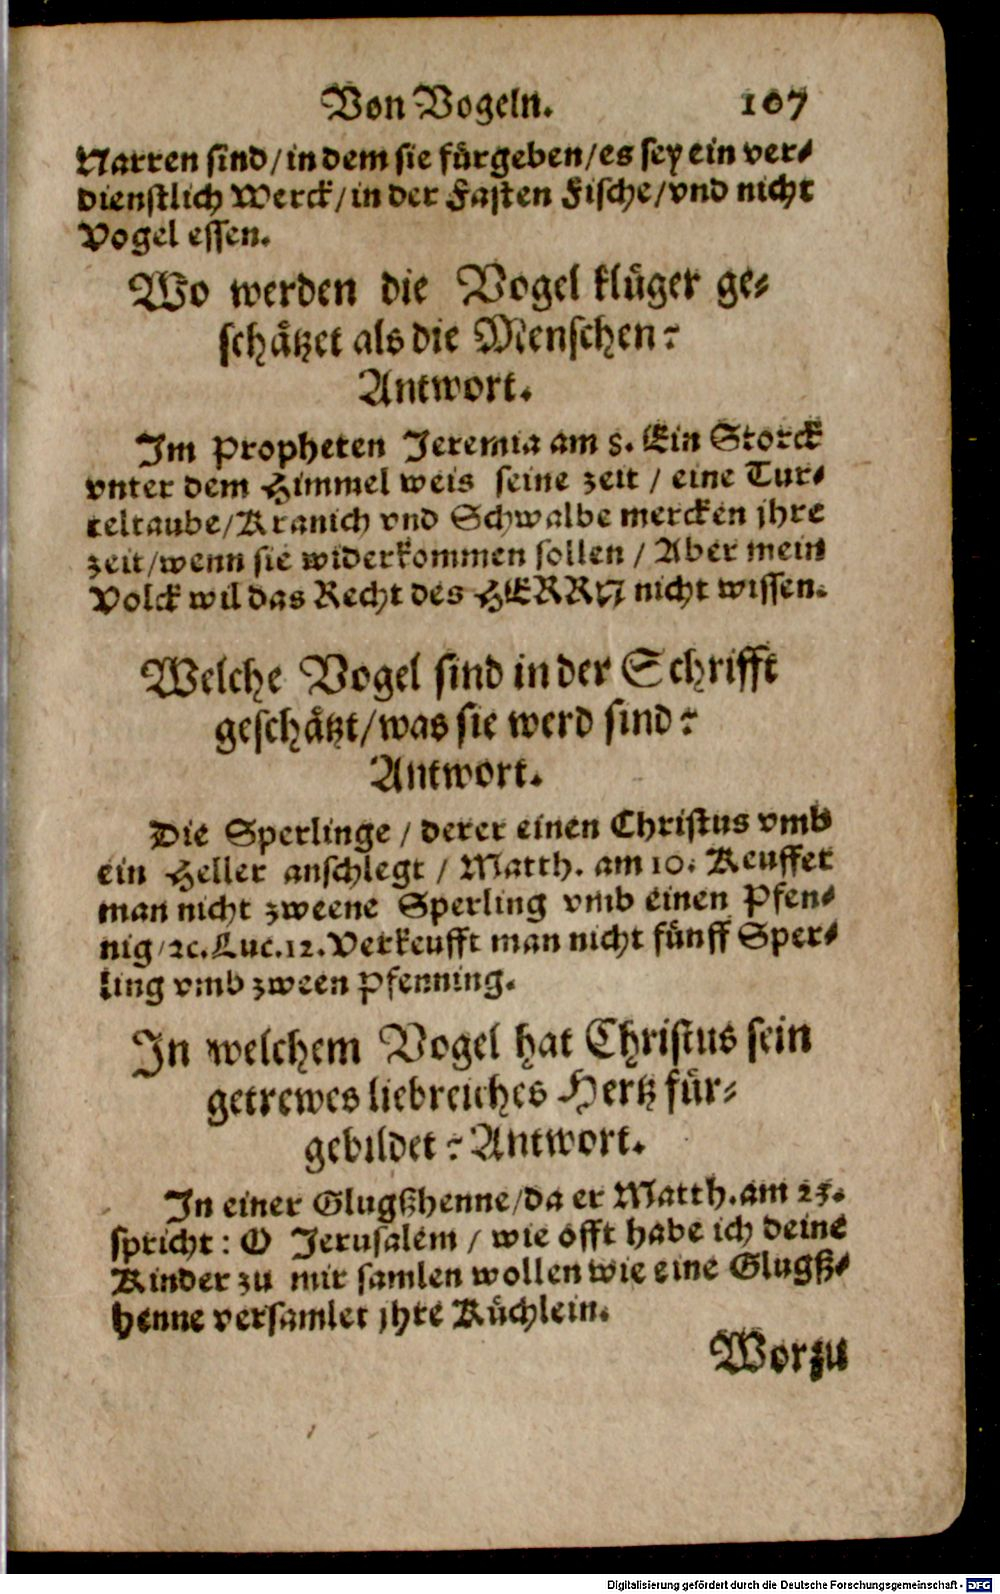 Von Vogeln. 107
Narren sind/in dem sie fürgeben/es sey ein ver⸗
dienstlich Werck/in der Fasten Fische/vnd nicht
Vogel essen.
Wo werden die Vogel klüger ge⸗
schätzet als die Menschen?
Antwort.
Im Propheten Jeremia am 8. Ein Storck
vnter dem Himmel weis seine zeit / eine Tur⸗
teltaube/Kranich vnd Schwalbe mercken jhre
zeit/wenn sie widerkommen sollen / Aber mein
Volck wil das Recht des HERRN nicht wissen.
Welche Vogel sind in der Schrifft
geschätzt/was sie werd sind?
Antwort.
Die Sperlinge / derer einen Christus vmb
ein Heller anschlegt / Matth. am 10. Keuffet
man nicht zweene Sperling vmb einen Pfen⸗
nig/ꝛc. Luc. 12. Verkeufft man nicht fünff Sper⸗
ling vmb zween Pfenning.
In welchem Vogel hat Christus sein
getrewes liebreiches Hertz für⸗
gebildet? Antwort.
In einer Glugßhenne/da er Matth. am 23.
spricht: O Jerusalem / wie offt habe ich deine
Kinder zu mir samlen wollen wie eine Glugß⸗
henne versamlet jhre Küchlein.
Worzu
Digitalisierung gefördert durch die Deutsche Forschungsgemeinschaft - DFG